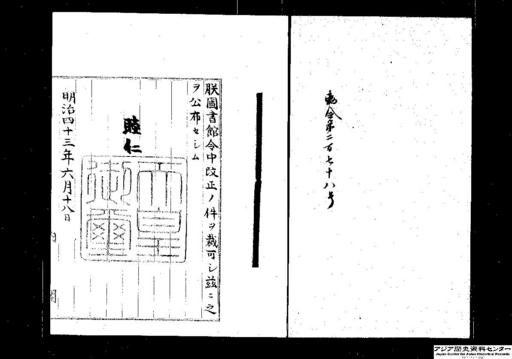 勅令第二百七十八号
朕圖書館令中改正ノ件ヲ裁可シ茲ニ之
ヲ公布セシム
睦仁
天皇
御璽
明治四十三年六月十八日
内閣
アジア歴史資料センター
Japan Center for Asian Historical Records